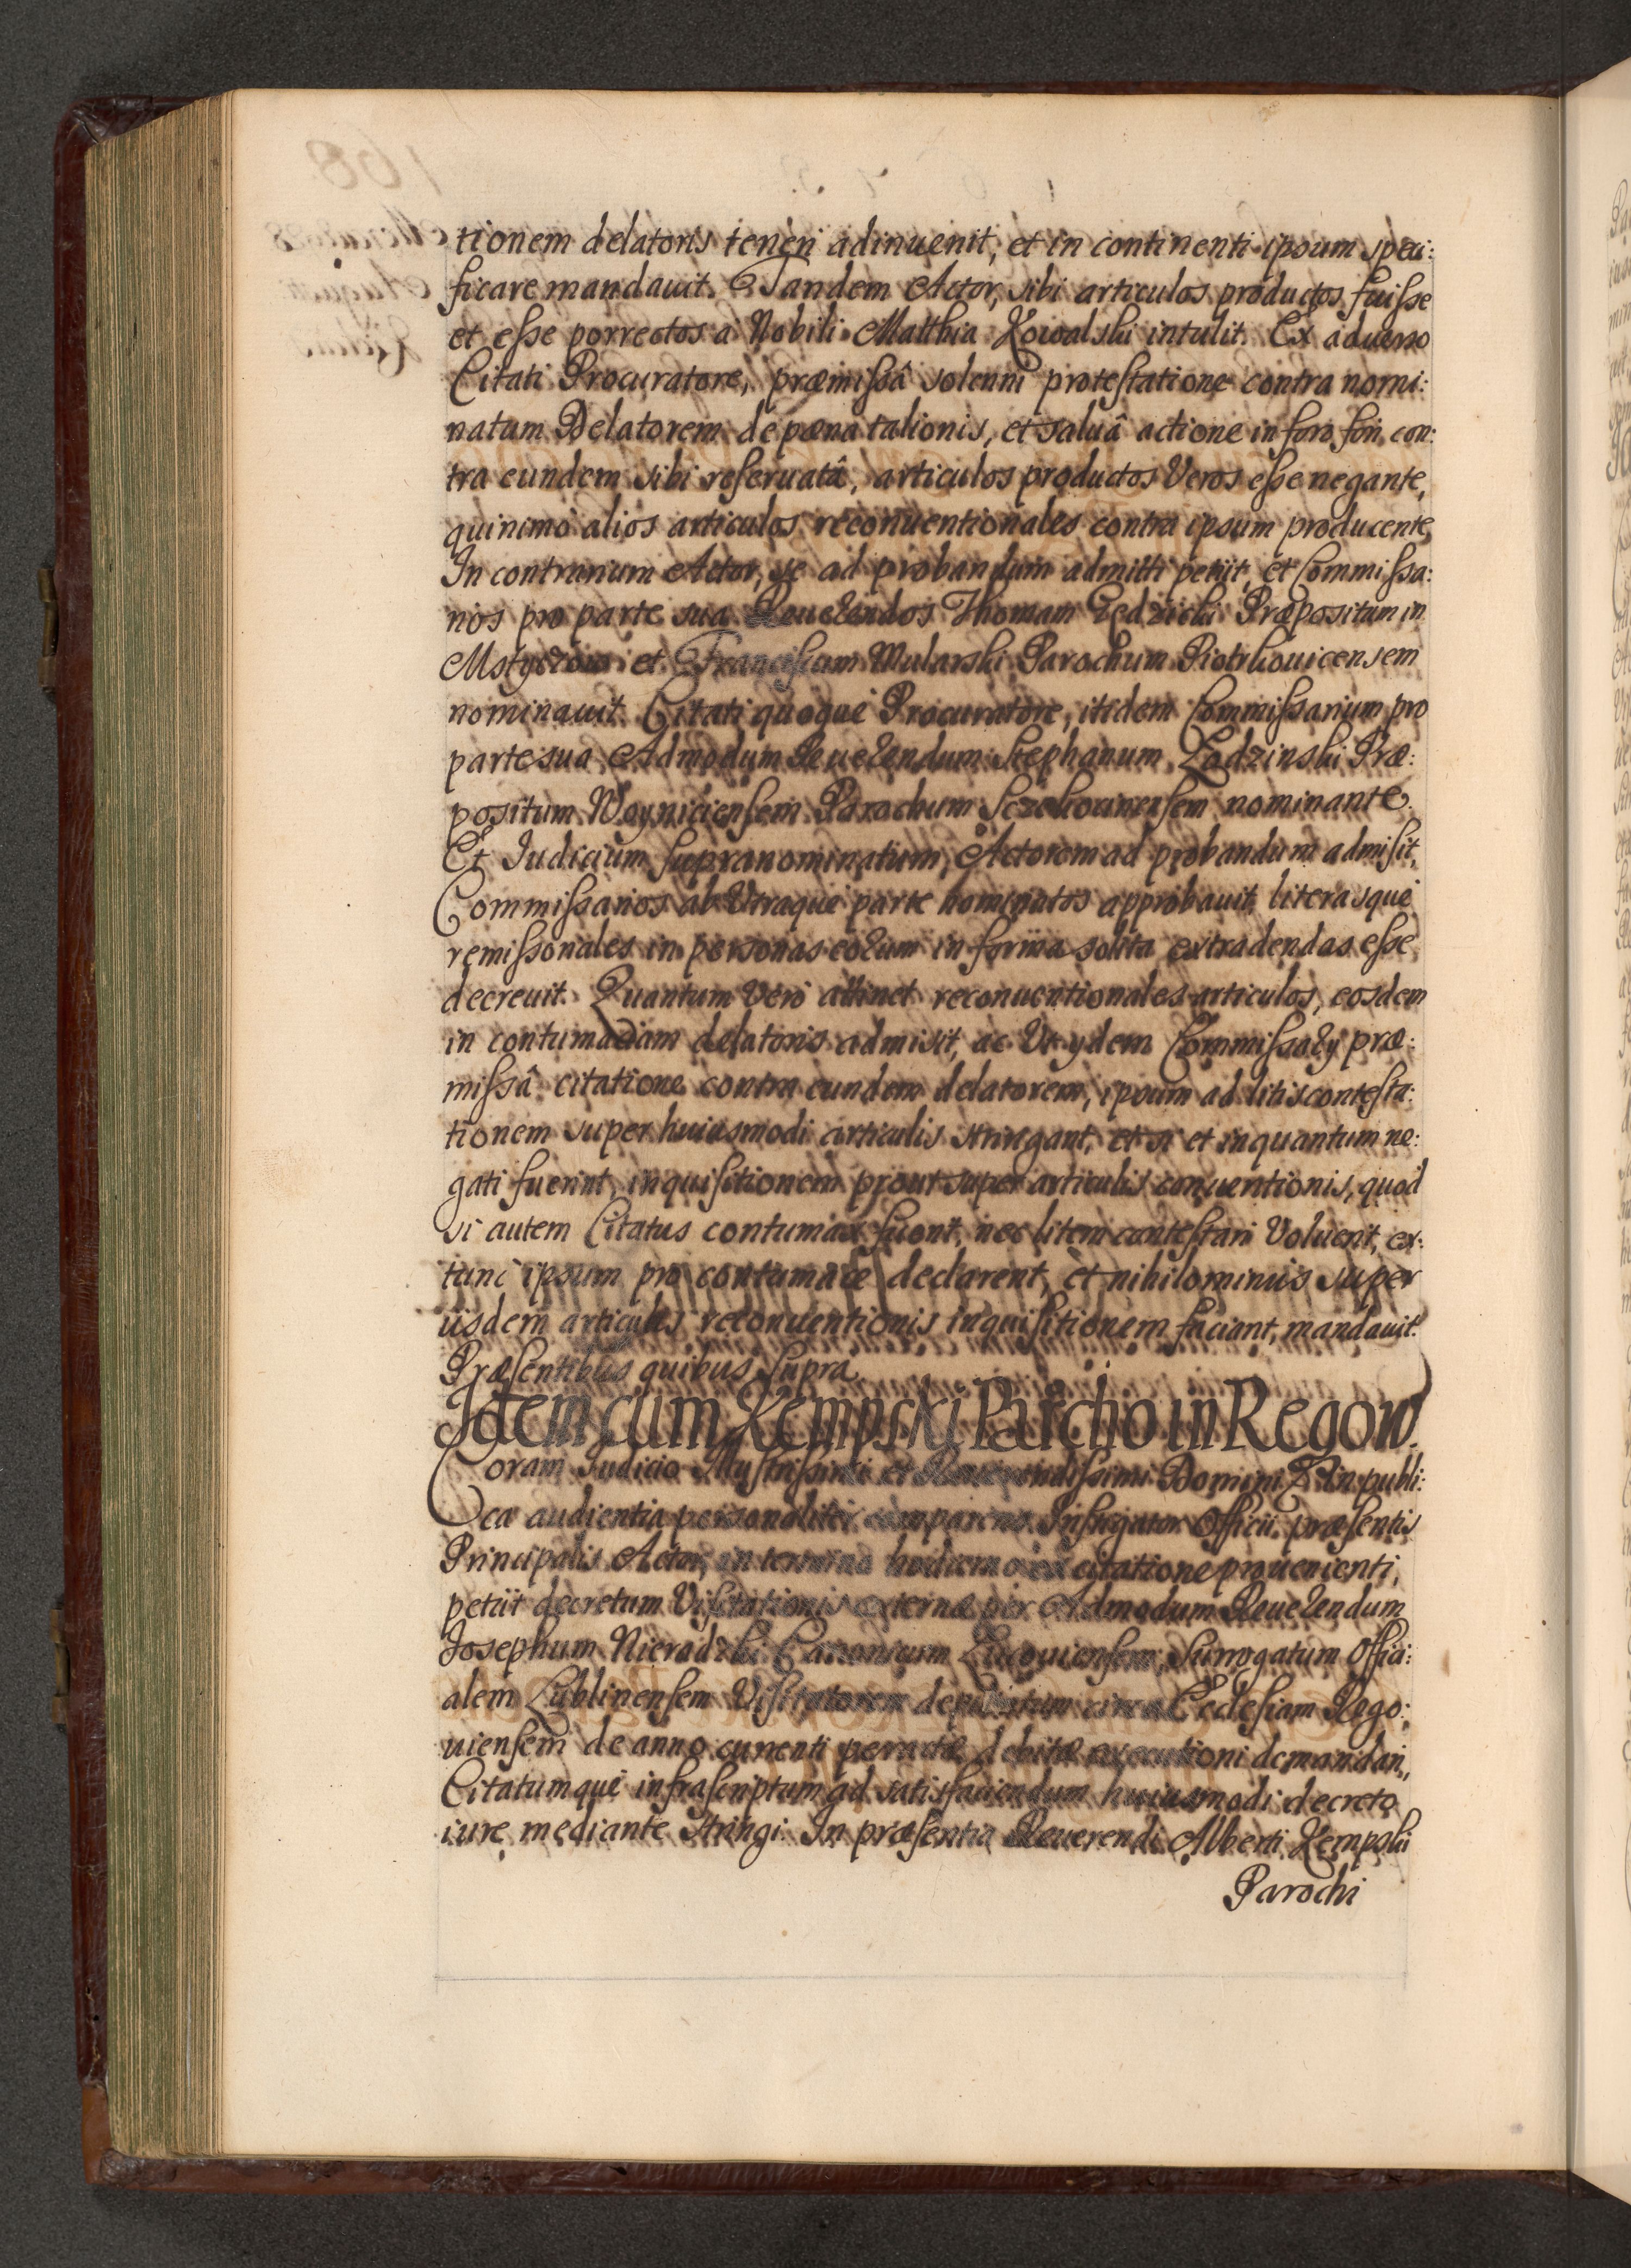 tionem delatoris teneri adinuenit, et in continenti ipsum speci:
ficare mandauit. Tandem Actor, sibi articulos productos fuisse
et esse porrectos à Nobili Matthia Kowalski intulit. Ex aduerso
Citati Procuratore, præmissâ solenni protestatione contra nomi:
natum Delatorem de pæna talionis, et saluâ actione in foro fori con:
tra eundem sibi reseruatâ, articulos productos Veros esse negante,
quinimo alios articulos reconuentionales contra ipsum producente,
In contrarium Actor, se ad probandum admitti petiit, et Commissa:
rios pro parte sua Reuerendos Thomam Præpositum in
et Franciscum Mularski Parochum Piotrkouicensem
nominauit. Citati quoque Procuratore, itidem Commissarium pro
parte sua Admodum Reuerendum Stephanum Præ:
positum Woyniciensem Parochum nominante.
Et Iudicium supranominatum, Actorem ad probandum admisit,
Commissarios ab Vtraque parte nominatos approbauit literasque
remissonales in personas eorum in forma solita extradendas esse
decreuit. Quantum Vero attinet reconuentionales articulos, eosdem
in contumaciam delatoris admisit, ac Vt ydem Commissary præ:
missâ citatione contra eundem delatorem, ipsum ad litis contesta:
tionem super huiusmodi articulis stringant, et si et inquantum ne:
gati fuerint, inquisitionem prout super articulis conuentionis, quod
si autem Citatus contumax fuerit, nec litem contestari Voluerit, ex:
tunc ipsum pro contumace declarent, et nihilominus super
iisdem articulis reconuentionis inquisitionem faciant, mandauit.
Præsentibus quibus supra.
Idem cum Kempski Parcho in Regow.
Coram Iudicio Illustrissimi et Reuerendissimi Domini in publi:
ca audientia personaliter comparens Instigator Officii præsentis
Principalis Actor, in termino hodierno ex citatione prouenienti,
petiit decretum Visitationis externæ per Admodum Reuerendum
Josephum Nieradzki Canonicum Surrogatum Offici:
alem Lublinensem Visitatorem deputatum circa Ecclesiam Rego:
uiensem de anno currenti peractæ debitæ executioni demandari,
Citatumque infrascriptum ad satisfaciendum huiusmodi decreto
iure mediante stringi. In præsentia Reuerendi Alberti Kempski
Parochi